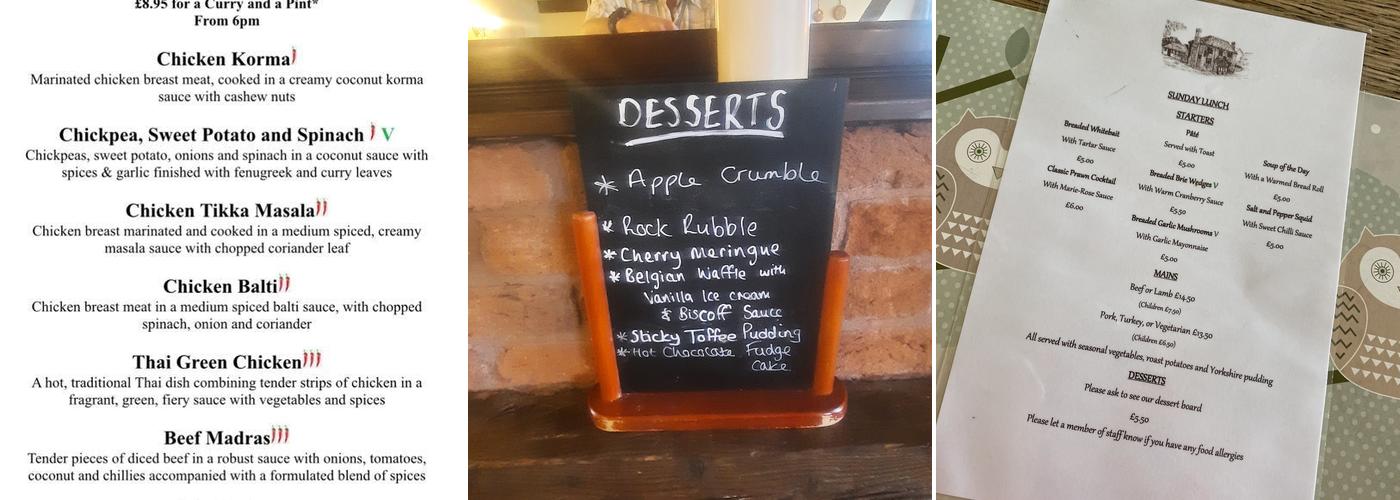 £8.95 for a Curry and a Pint*
From 6pm
Chicken Korma
Marinated chicken breast meat, cooked in a creamy coconut korma
sauce with cashew nuts
Chickpea, Sweet Potato and Spinach V
Chickpeas, sweet potato, onions and spinach in a coconut sauce with
spices & garlic finished with fenugreek and curry leaves
Chicken Tikka Masala
Chicken breast marinated and cooked in a medium spiced, creamy
masala sauce with chopped coriander leaf
Chicken Balti
Chicken breast meat in a medium spiced balti sauce, with chopped
spinach, onion and coriander
Thai Green Chicken
A hot, traditional Thai dish combining tender strips of chicken in a
fragrant, green, fiery sauce with vegetables and spices
Beef Madras
Tender pieces of diced beef in a robust sauce with onions, tomatoes,
coconut and chillies accompanied with a formulated blend of spices
DESSERTS
* Apple Crumble
* Rock Rubble
* Cherry Meringue
* Belgian Waffle with
Vanilla Ice cream
& Biscoff Sauce
* Sticky Toffee Pudding
* Hot Chocolate Fudge
Cake
SUNDAY LUNCH
STARTERS
Breaded Whitebait
With Tartar Sauce
£5.00
Classic Prawn Cocktail
With Marie-Rose Sauce
£6.00
Pâté
Served with Toast
£5.00
Breaded Brie Wedges V
With Warm Cranberry Sauce
£5.50
Breaded Garlic Mushrooms V
With Garlic Mayonnaise
£5.00
Soup of the Day
With a Warmed Bread Roll
£5.00
Salt and Pepper Squid
With Sweet Chilli Sauce
£5.00
MAINS
Beef or Lamb £14.50
(Children £7.50)
Pork, Turkey, or Vegetarian £13.50
(Children £6.50)
All served with seasonal vegetables, roast potatoes and Yorkshire pudding
DESSERTS
Please ask to see our dessert board
£5.50
Please let a member of staff know if you have any food allergies